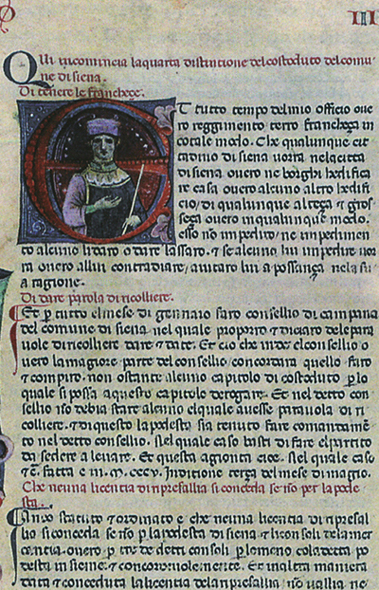 III
Qui incomincia la quarta distinctione del costoduto del comu
ne di siena.
Di tenere le franchece.
ET tutto tempo del mio officio oue
ro reggimento terro franchega in
cotale modo. Che qualunque cit
tadino di siena uorra nela citta
di siena ouero ne borghi hedifica
re casa ouero alcuno altro hedifi
cio/di qualunque alteça et gros
seça ouero in qualunque modo.
esso no impedito/ne impedimen
to alcuno sarano o dare lassaro. et se alcuno lui impedire uor
ra ouero allui contradiare/aiutaro lui a possança nela su
a ragione.
Di dare parola di ricolliere.
Et p tutto el mese di gennaio faro consellio di campana
del comune di siena. nel quale proporro et diçaro dele para
uole di ricolliere dare et date. Et cio che in del consellio o
uero la magiore parte del consellio/concordara quello faro
et compiro. non ostante alcuno capitolo di costoduto p lo
quale si possa a questo capitolo derogare. Et nel detto con
sellio no debia stare alcuno el quale auesse parauola di ri
colliere. et di questo la podesta sia tenuto fare comandame
to nel detto consellio. Nel quale caso basti di fare el partito
da sedere a leuare. Et questa agionta cioe. Nel quale caso
etc. fatta e in. M. CCC V. Inditione terça del mese di magio.
Che neuna licentia di ripresallia si conceda se no per la pode
sta.
Anco statuto et ordinato e che neuna licentia di ripresal
lia si conceda se no p la podesta di siena et li consoli dela mer
cantia. ouero p tre de detti consoli p lo meno cola detta po
desta insieme. et concoreuolemente. Et in altra maniera
data et conceduta la licentia dela ripresallia/no uallia ne